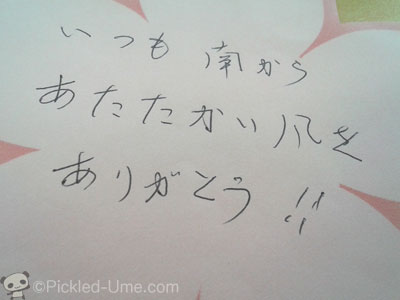 いつも 南から
あたたかい風を
ありがとう!!
©Pickled-Ume.com